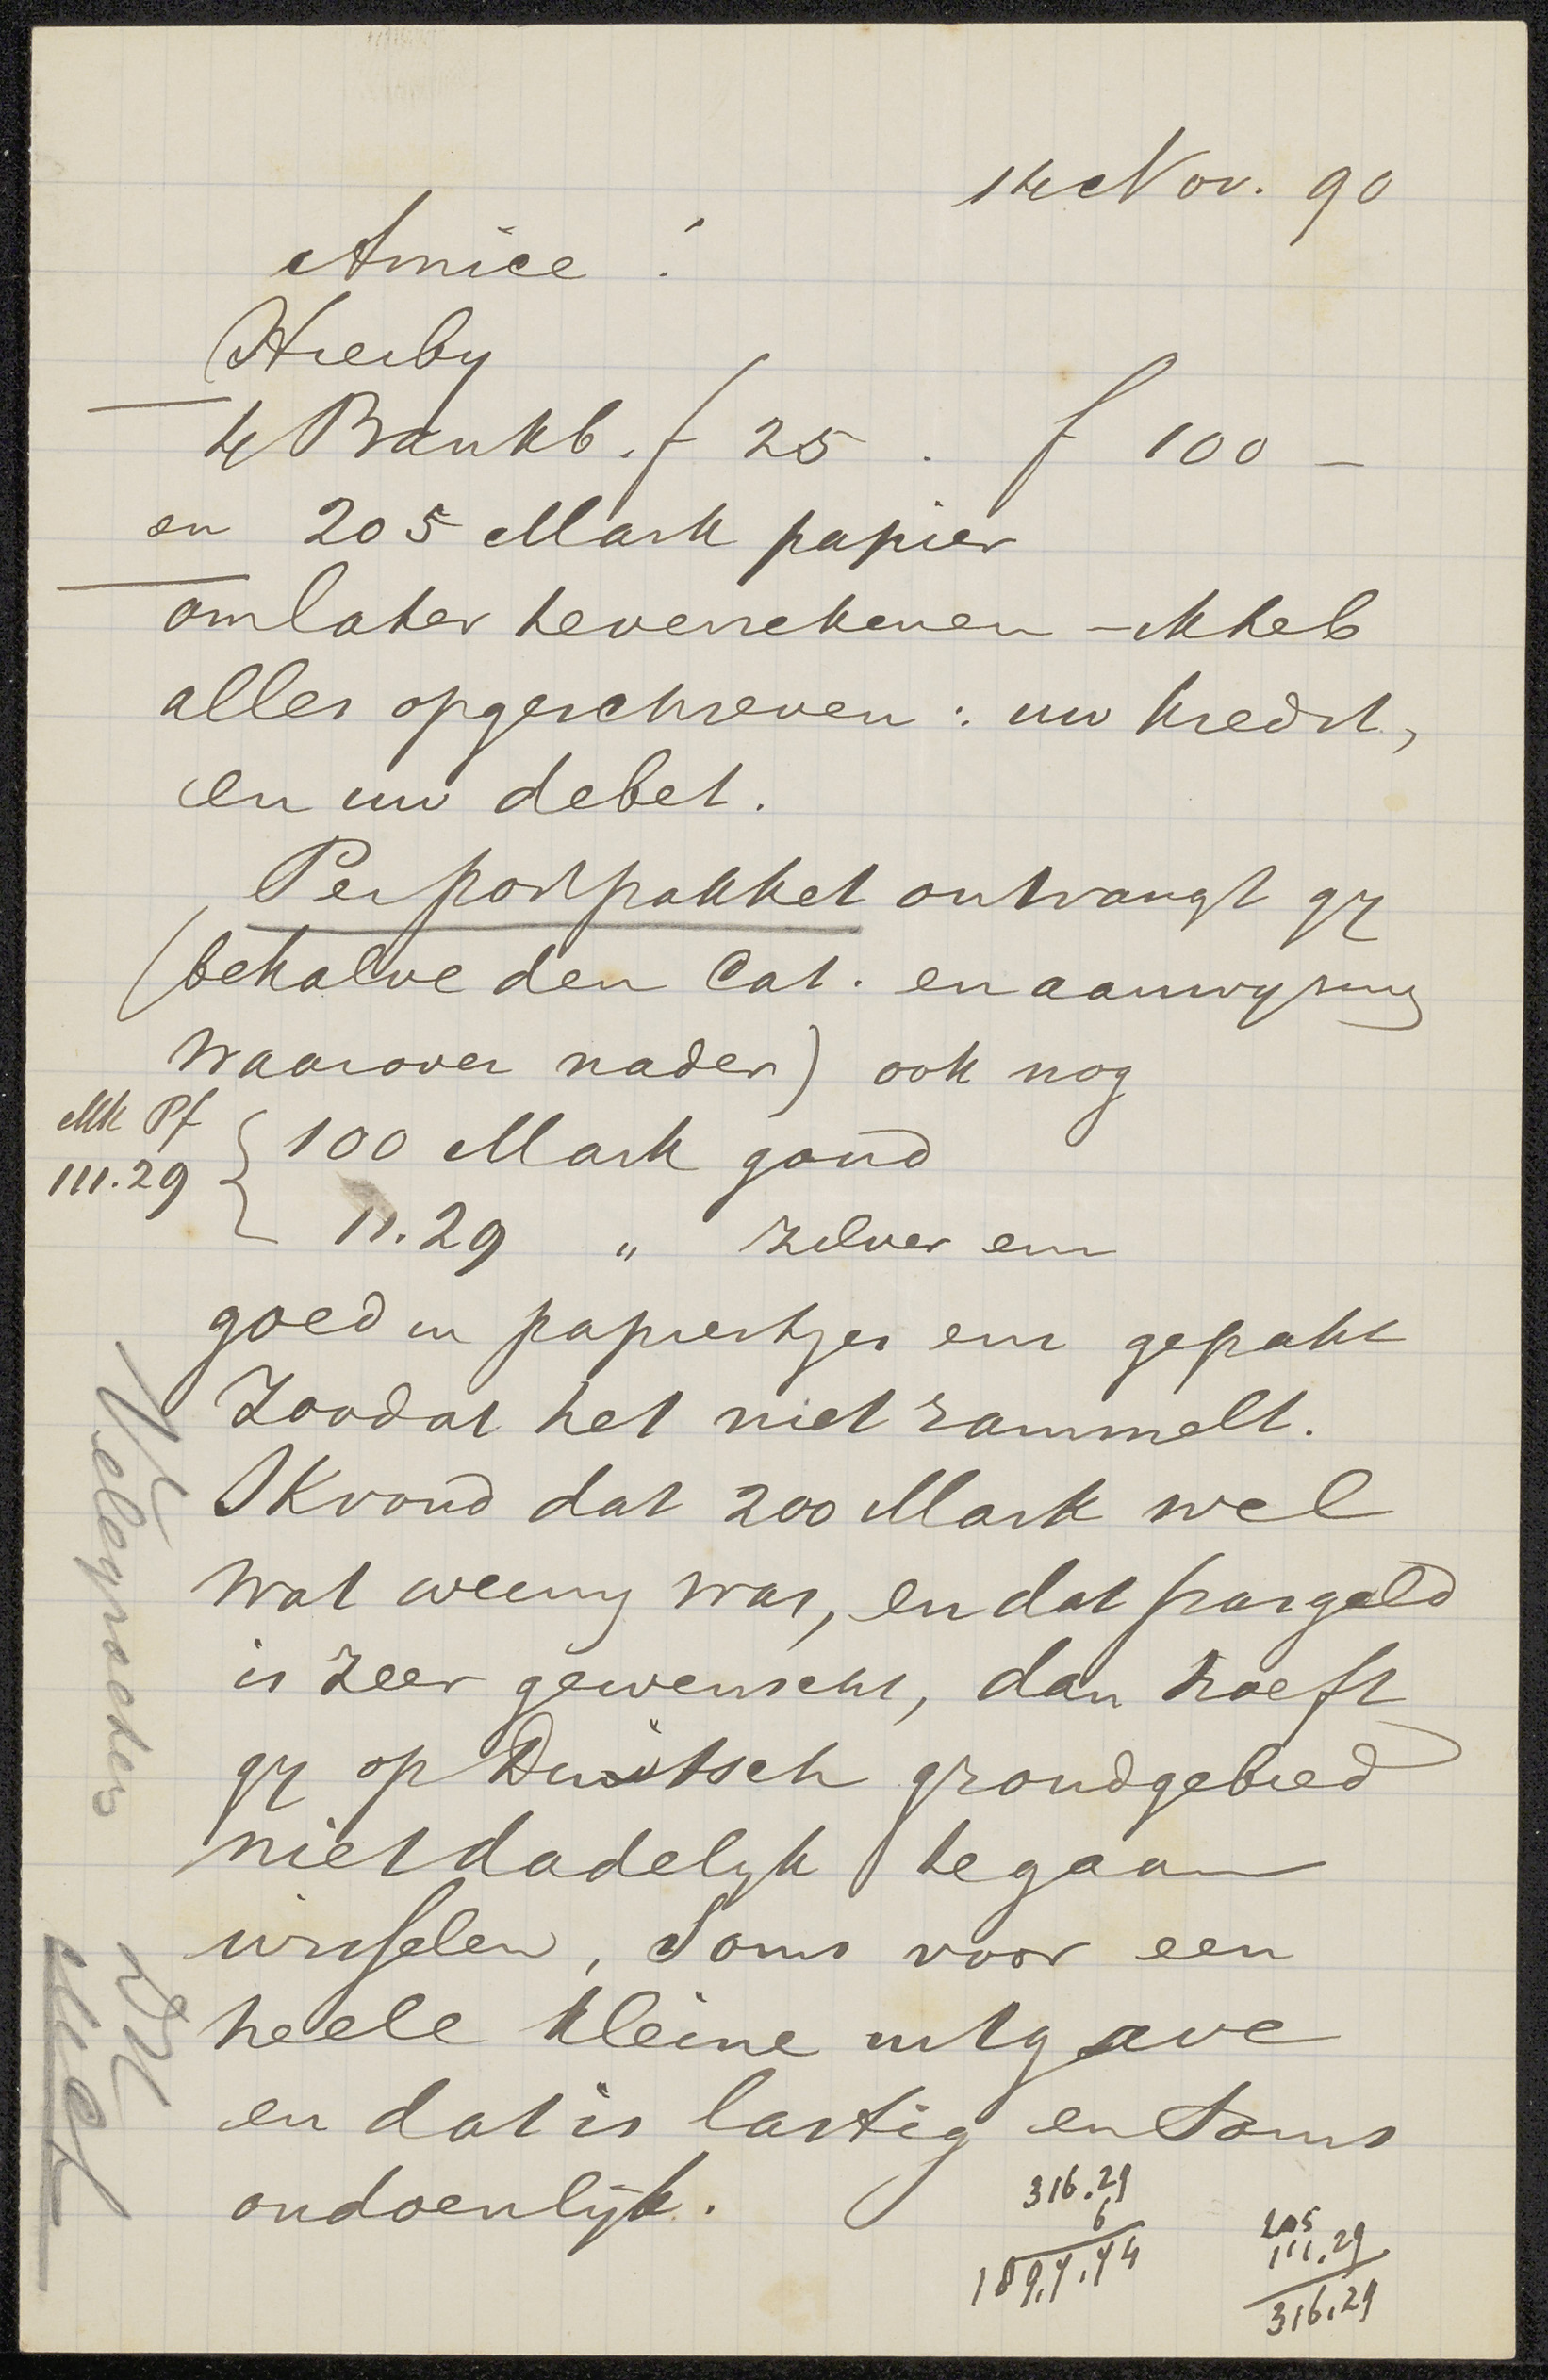 14 Nov. 90
Amice!
Hierby
4 Bankb. f 25 . f 100 –
en 205 Mark papier
om later te verrekenen – ik heb
alles opgeschreven: uw kredit,
en uw debet.
Per postpakket ontvangt gy
(behalve den Cat. en aanwyzing
waarover nader) ook nog
Mk Pf
111.29
100 Mark goud
11.29 " zilver en
goed in papiertjes en gepakt
Zoodat het niet rammelt.
Ik vond dat 200 Mark wel
wat weinig was, en dat pasgeld
is zeer gewenscht, dan hoeft
gy op Duitsch grondgebied
niet dadelyk te gaan
wisselen, soms voor een
heele kleine uitgave
en dat is lastig en soms
ondoenlyk.
316.29
6
189,7.74
205
111.29
316.29